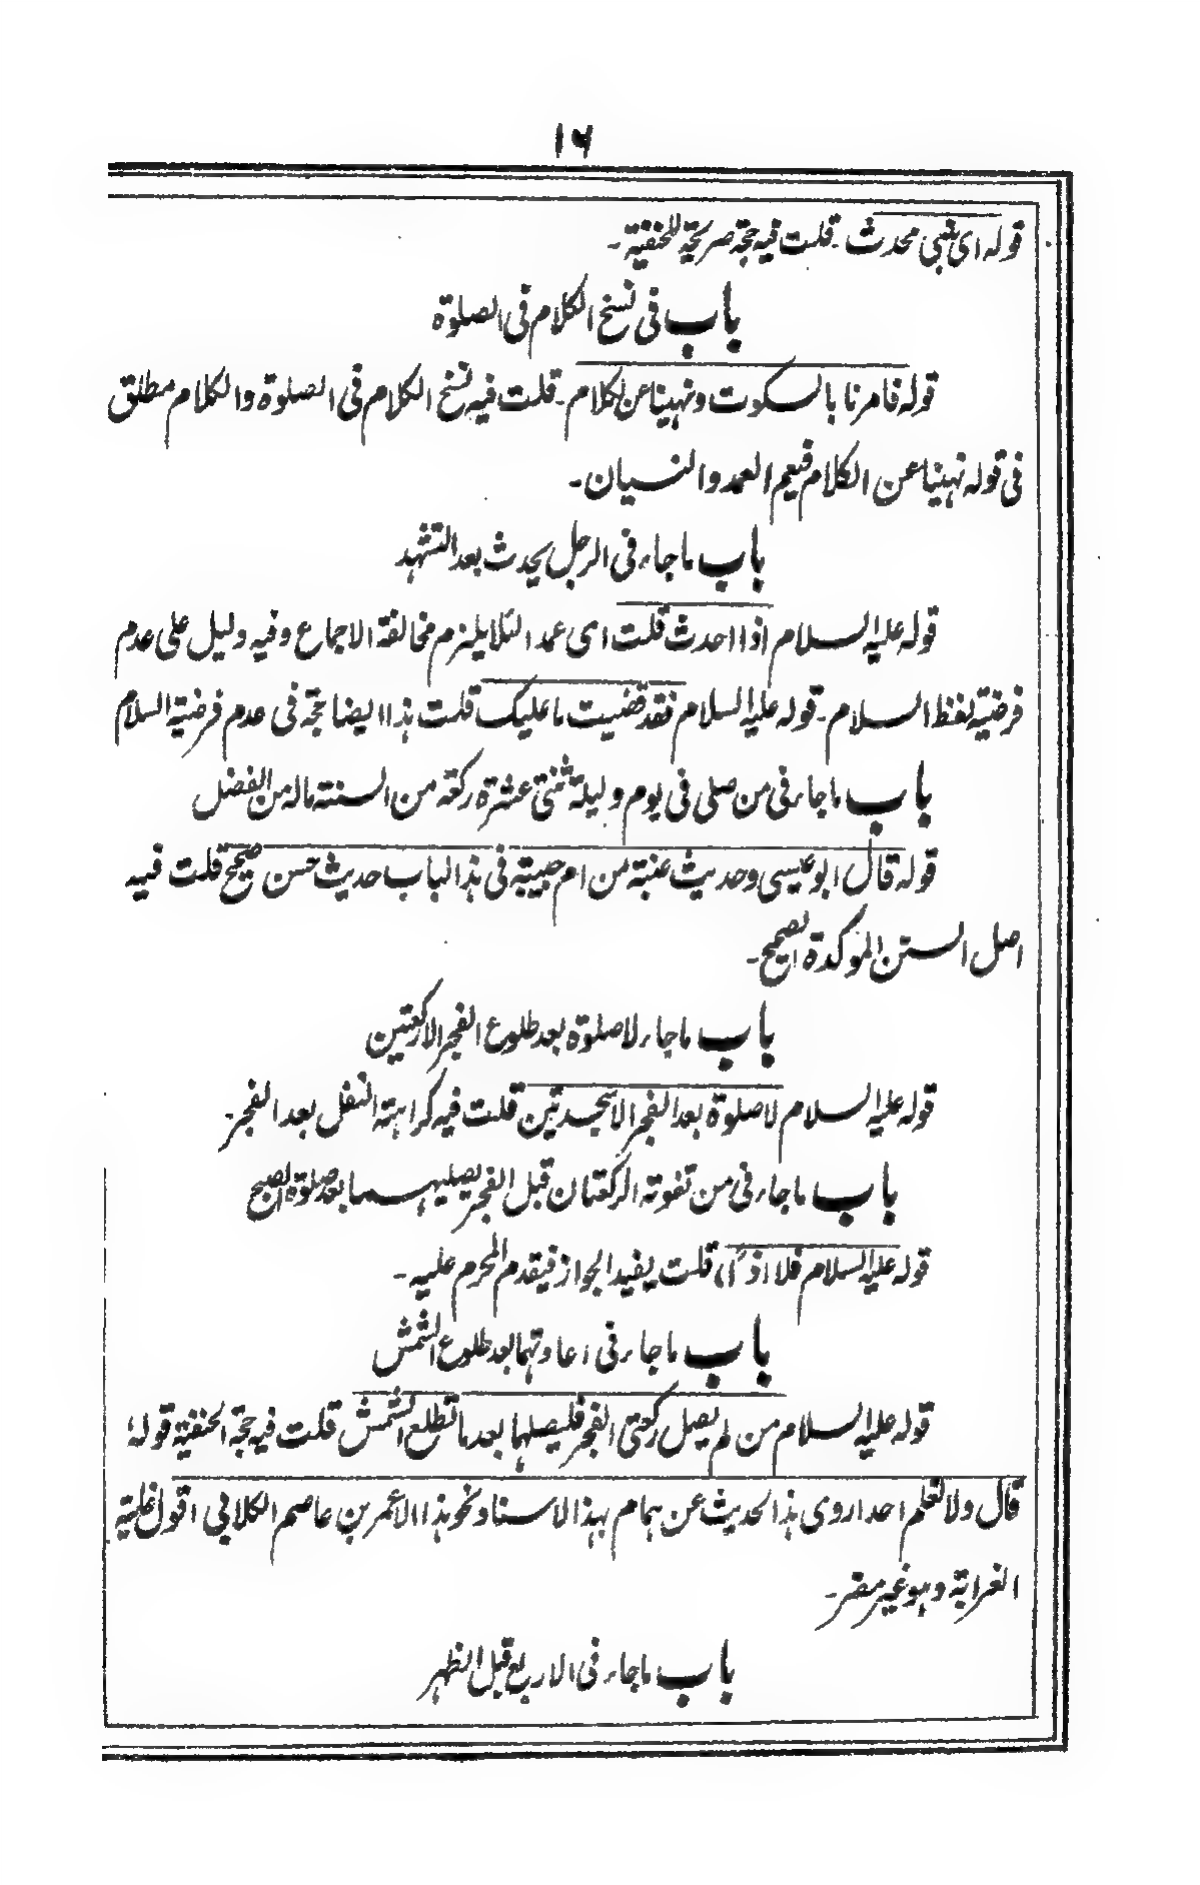 ١٦
قوله ای بنی محدث ۔ قلت فیه حجة صریحة للحنفیة ۔
باب فی نسخ الکلام فی الصلوة
قوله فامرنا بالسکوت ونهینا عن الکلام ۔ قلت فیه نسخ الکلام فی الصلوة والکلام مطلق
فی قوله نهینا عن الکلام فیعم العمد والنسیان ۔
باب ما جاء فی الرجل یحدث بعد التشهد
قوله علیه السلام اذا احدث قلت ای عمدا لئلا یلزم مخالفة الاجماع وفیه دلیل علی عدم
فرضیة لفظ السلام ۔ قوله علیه السلام فقد قضیت ما علیک قلت هذا ایضا حجة فی عدم فرضیة السلام
باب ما جاء فی من صلی فی یوم ولیلة ثنتی عشرة رکعة من السنة ماله من الفضل
قوله قال ابو عیسی وحدیث عنبة من ام حبیبة فی هذا الباب حدیث حسن صحیح قلت فیه
اصل السنن الموکدة الصحیح ۔
باب ما جاء لا صلوة بعد طلوع الفجر الا رکعتین
قوله علیه السلام لا صلوة بعد الفجر الا سجدتین قلت فیه کراهة النفل بعد الفجر ۔
باب ما جاء فی من تفوته الرکعتان قبل الفجر یصلیهما بعد صلوة الصبح
قوله علیه السلام فلا اذًا، قلت یفید الجواز فیقدم المحرم علیه ۔
باب ما جاء فی اعادتهما بعد طلوع الشمس
قوله علیه السلام من لم یصل رکعتی الفجر فلیصلهما بعد ما تطلع الشمس قلت فیه حجة الحنفیة قوله؛
قال ولا نعلم احدا روی هذا الحدیث عن همام بهذا الاسناد نحو هذا الا عمر بن عاصم الکلابی اقول غایته
الغرابة وهو غیر مضر ۔
باب ما جاء فی الاربع قبل الظهر